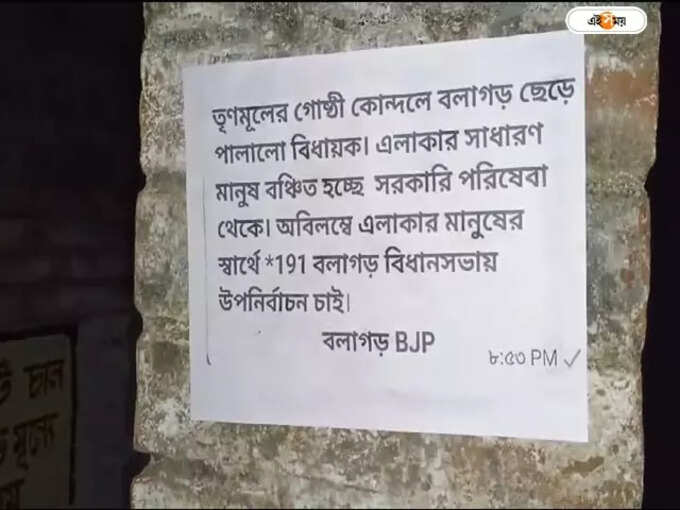 এই সময়
তৃণমূলের গোষ্ঠী কোন্দলে বলাগড় ছেড়ে
পালালো বিধায়ক। এলাকার সাধারণ
মানুষ বঞ্চিত হচ্ছে সরকারি পরিষেবা
থেকে। অবিলম্বে এলাকার মানুষের
স্বার্থে *191 বলাগড় বিধানসভায়
উপনির্বাচন চাই।
বলাগড় BJP
৮:৫৩ PM ✓
চান